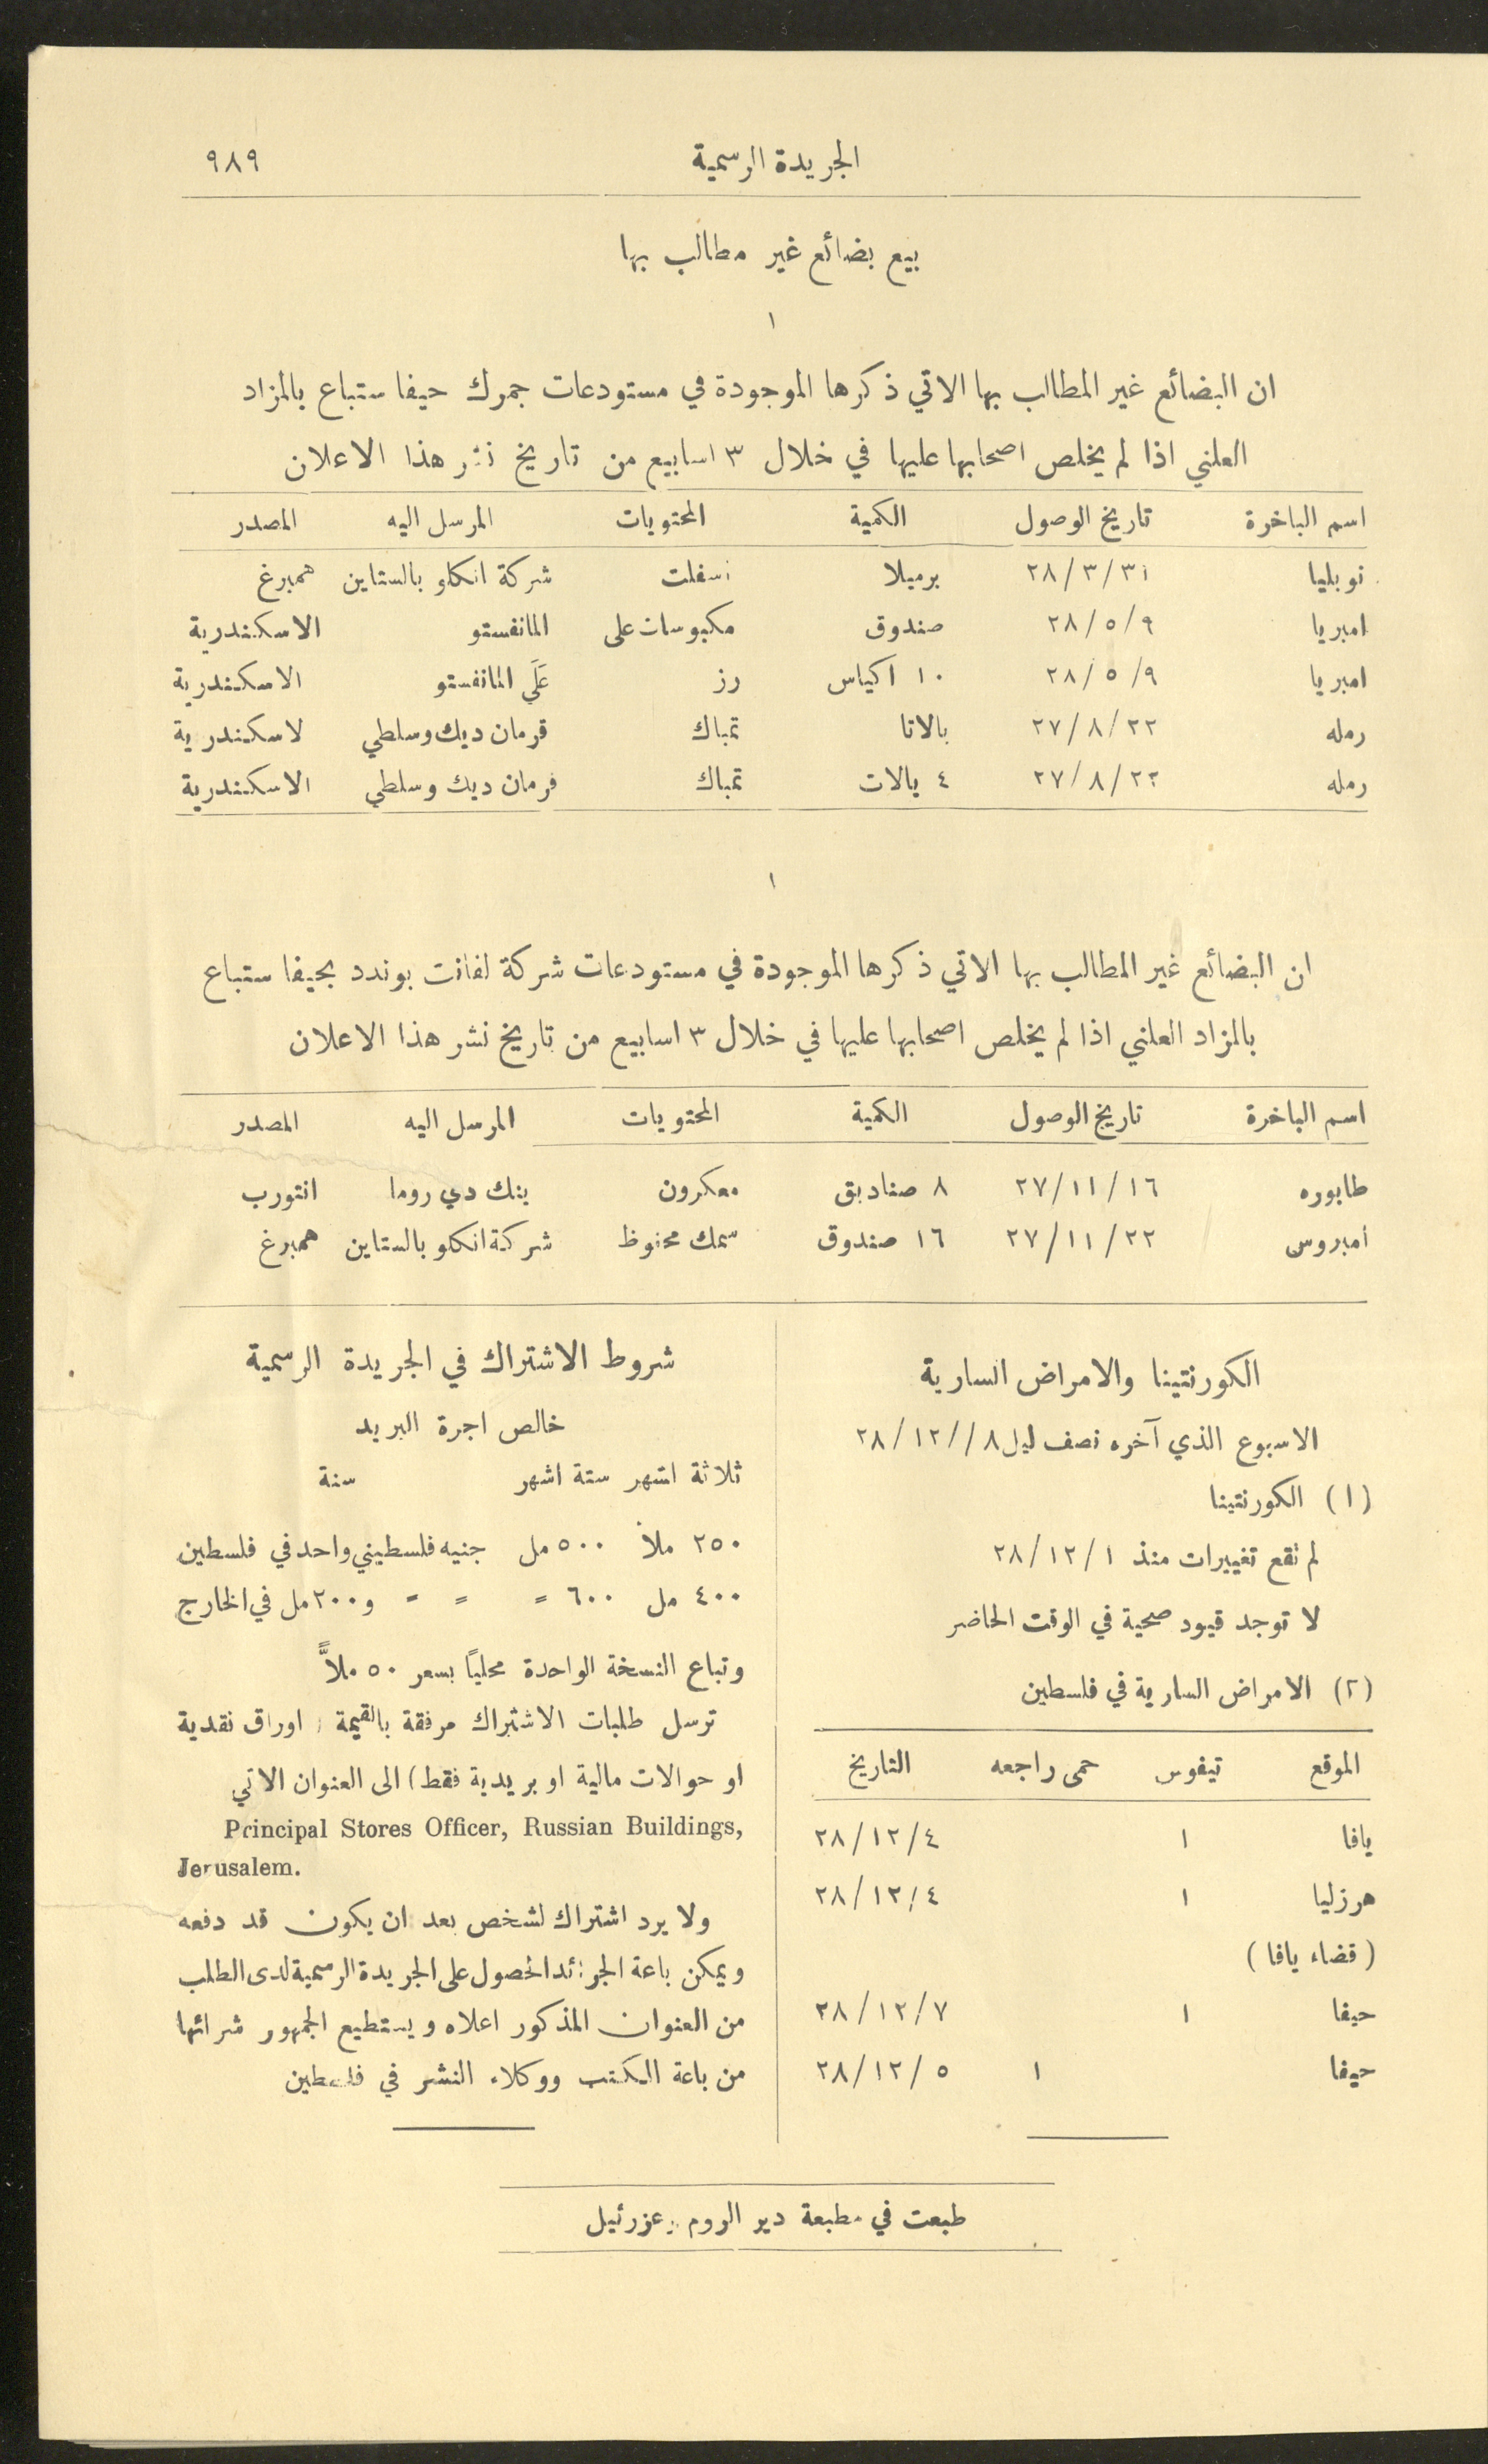 الجريدة الرسمية ٩٨٩
بيع بضائع غير مطالب بها
١
ان البضائع غير المطالب بها الاتي ذكرها الموجودة في مستودعات جمرك حيفا ستباع بالمزاد
العلني اذا لم يخلص اصحابها عليها في خلال ٣ اسابيع من تاريخ نشر هذا الاعلان
اسم الباخرة تاريخ الوصول الكمية المحتويات المرسل اليه المصدر
نوبليا ٢٨/٣/٣١ برميلا اسفلت شركة انكلو بالستاين همبرغ
امبريا ٢٨/٥/٩ صندوق مكبوسات على المانفستو الاسكندرية
امبريا ٢٨/٥/٩ ١٠ اكياس رز عَلَى المانفستو الاسكندرية
رمله ٢٧/٨/٢٢ بالاتا تمباك قرمان ديك وسلطي لاسكندرية
رمله ٢٧/٨/٢٢ ٤ بالات تمباك فرمان ديك وسلطي الاسكندرية
١
ان البضائع غير المطالب بها الاتي ذكرها الموجودة في مستودعات شركة لفانت بوندد بحيفا ستباع
بالمزاد العلني اذا لم يخلص اصحابها عليها في خلال ٣ اسابيع من تاريخ نشر هذا الاعلان
اسم الباخرة تاريخ الوصول الكمية المحتويات المرسل اليه المصدر
طابوره ٢٧/١١/١٦ ٨ صناديق معكرون بنك دي روما انتورب
امبروس ٢٧/١١/٢٢ ١٦ صندوق سمك محفوظ شركة انكلو بالستاين همبرغ
الكورنتينا والامراض السارية
الاسبوع الذي آخره نصف ليل ٨//٢٨/١٢
(١) الكورنتينا
لم تقع تغييرات منذ ٢٨/١٢/١
لا توجد قيود صحية في الوقت الحاضر
(٢) الامراض السارية في فلسطين
الموقع تيفوس حمى راجعه التاريخ
يافا ١ ٢٨/١٢/٤
هرزليا ١ ٢٨/١٢/٤
(قضاء يافا)
حيفا ١ ٢٨/١٢/٧
حيفا ١ ٢٨/١٢/٥
شروط الاشتراك في الجريدة الرسمية
خالص اجرة البريد
ثلاثة اشهر ستة اشهر سنة
٢٥٠ ملاً ٥٠٠ مل جنيه فلسطيني واحد في فلسطين
٤٠٠ مل ٦٠٠ = = = و٢٠٠ مل في الخارج
وتباع النسخة الواحدة محلياً بسعر ٥٠ ملاًّ
ترسل طلبات الاشتراك مرفقة بالقيمة ( اوراق نقدية
او حوالات مالية او بريدية فقط) الى العنوان الاتي
Principal Stores Officer, Russian Buildings,
Jerusalem.
ولا يرد اشتراك لشخص بعد ان يكون قد دفعه
ويمكن باعة الجرائد الحصول على الجريدة الرسمية لدى الطلب
من العنوان المذكور اعلاه ويستطيع الجمهور شرائها
من باعة الكتب ووكلاء النشر في فلسطين
طبعت في مطبعة دير الروم بعزرئيل